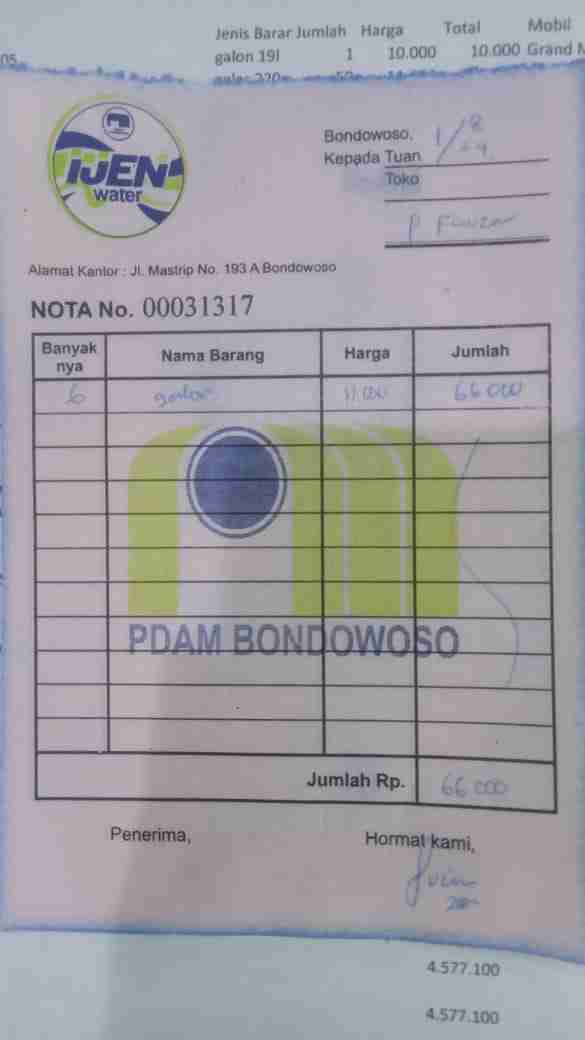 Jenis Barar Jumlah Harga Total Mobil
galon 19l 1 10.000 10.000 Grand
05
IJEN
water
Bondowoso, 1/8
Kepada Tuan
Toko
P
Alamat Kantor : Jl. Mastrip No. 193 A Bondowoso
NOTA No. 00031317
Banyak nya Nama Barang Harga Jumlah
6 galon 11.000 66.000
PDAM BONDOWOSO
Jumlah Rp. 66.000
Penerima, Hormat kami,
4.577.100
4.577.100